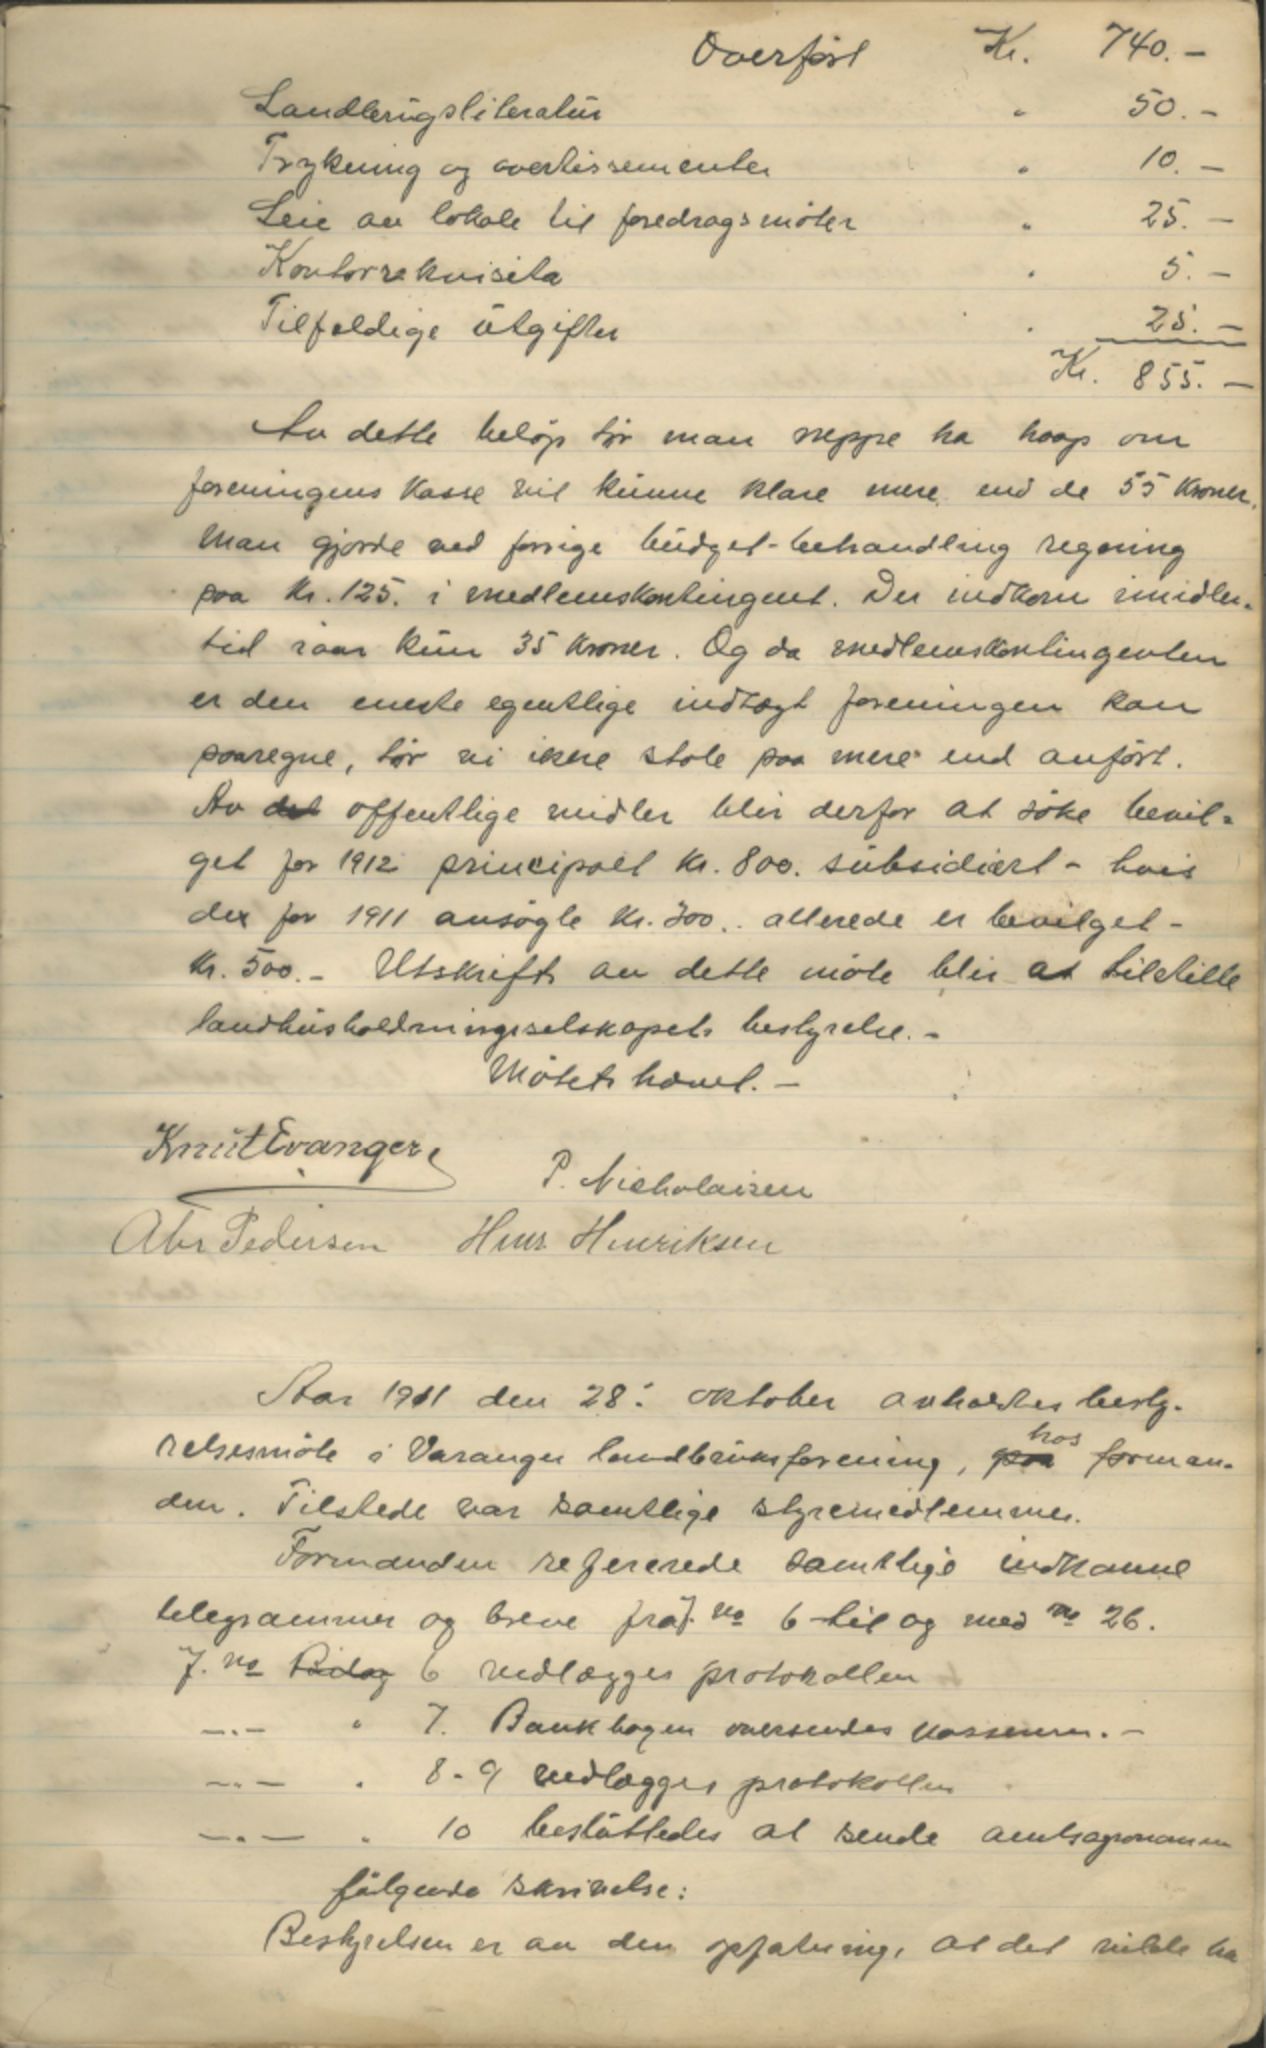 Overført Kr. 740.-
Landbrugsliteratur " 50.-
Trykning og avertissementer " 10.-
Leie av lokale til foredragsmöter " 25.-
Kontorrekvisita " 5.-
Tilfeldige utgifter " 25.-
Kr. 855.-
Av dette beløp tör man neppe ha haap om
foreningens kasse vil kunne klare mere end de 55 kroner.
Man gjorde ved forrige budget-behandling regning
paa Kr. 125. i medlemskontingent. Der indkom imidler-
tid iaar kun 35 kroner. Og da medlemskontingenten
er den eneste egentlige indtægt foreningen kan
paaregne, tör vi ikke stole paa mere end anfört.
Av det offentlige midler blir derfor at söke bevil-
get for 1912 principalt Kr. 800. subsidiært - hvis
der for 1911 ansögte Kr. 300.. allerede er bevilget -
Kr. 500.- Utskrift av dette möte blir at tilstille
landhusholdningsselskapets bestyrelse.-
Mötet hævet.-
Knut Evanger
P. Nicholaisen
Abr Pedersen Hans Henriksen
Aar 1911 den 28. oktober avholdtes besty-
relsesmöte i Varanger landbruksforening, paa hos forman-
den. Tilstede var samtlige styremedlemmer.
Formanden refererede samtlige indkomne
telegrammer og breve fra j. no 6 til og med no 26.
J. no Bilag 6 vedlægges protokollen
-.- " 7. Bankbogen oversendes kasseren.-
-.- " 8-9 vedlægges protokollen
-.- " 10 besluttedes at sende amtsagronomen
fölgende skrivelse:
Bestyrelsen er av den opfatning, at det vilde ha